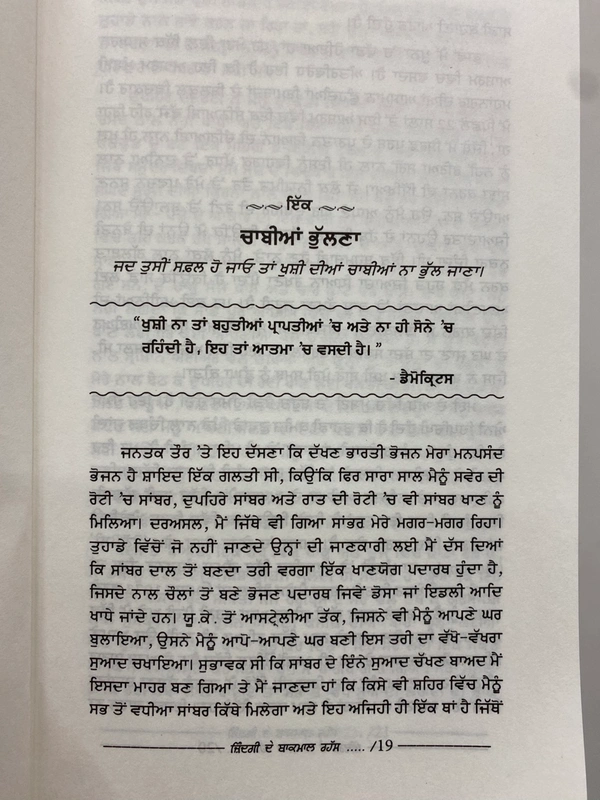 ਇੱਕ
ਚਾਬੀਆਂ ਭੁੱਲਣਾ
ਜਦ ਤੁਸੀਂ ਸਫ਼ਲ ਹੋ ਜਾਓ ਤਾਂ ਖੁਸ਼ੀ ਦੀਆਂ ਚਾਬੀਆਂ ਨਾ ਭੁੱਲ ਜਾਣਾ।
“ਖੁਸ਼ੀ ਨਾ ਤਾਂ ਬਹੁਤੀਆਂ ਪ੍ਰਾਪਤੀਆਂ ’ਚ ਅਤੇ ਨਾ ਹੀ ਸੋਨੇ ’ਚ
ਰਹਿੰਦੀ ਹੈ, ਇਹ ਤਾਂ ਆਤਮਾ ’ਚ ਵਸਦੀ ਹੈ। ”
- ਡੈਮੋਕ੍ਰਿਟਸ
ਜਨਤਕ ਤੌਰ ’ਤੇ ਇਹ ਦੱਸਣਾ ਕਿ ਦੱਖਣ ਭਾਰਤੀ ਭੋਜਨ ਮੇਰਾ ਮਨਪਸੰਦ
ਭੋਜਨ ਹੈ ਸ਼ਾਇਦ ਇੱਕ ਗਲਤੀ ਸੀ, ਕਿਉਂਕਿ ਫਿਰ ਸਾਰਾ ਸਾਲ ਮੈਨੂੰ ਸਵੇਰ ਦੀ
ਰੋਟੀ ’ਚ ਸਾਂਬਰ, ਦੁਪਹਿਰੇ ਸਾਂਬਰ ਅਤੇ ਰਾਤ ਦੀ ਰੋਟੀ ’ਚ ਵੀ ਸਾਂਬਰ ਖਾਣ ਨੂੰ
ਮਿਲਿਆ। ਦਰਅਸਲ, ਮੈਂ ਜਿੱਥੇ ਵੀ ਗਿਆ ਸਾਂਭਰ ਮੇਰੇ ਮਗਰ-ਮਗਰ ਰਿਹਾ।
ਤੁਹਾਡੇ ਵਿੱਚੋਂ ਜੋ ਨਹੀਂ ਜਾਣਦੇ ਉਨ੍ਹਾਂ ਦੀ ਜਾਣਕਾਰੀ ਲਈ ਮੈਂ ਦੱਸ ਦਿਆਂ
ਕਿ ਸਾਂਬਰ ਦਾਲ ਤੋਂ ਬਣਦਾ ਤਰੀ ਵਰਗਾ ਇੱਕ ਖਾਣਯੋਗ ਪਦਾਰਥ ਹੁੰਦਾ ਹੈ,
ਜਿਸਦੇ ਨਾਲ ਚੌਲਾਂ ਤੋਂ ਬਣੇ ਭੋਜਣ ਪਦਾਰਥ ਜਿਵੇਂ ਡੋਸਾ ਜਾਂ ਇਡਲੀ ਆਦਿ
ਖਾਧੇ ਜਾਂਦੇ ਹਨ। ਯੂ.ਕੇ. ਤੋਂ ਆਸਟ੍ਰੇਲੀਆ ਤੱਕ, ਜਿਸਨੇ ਵੀ ਮੈਨੂੰ ਆਪਣੇ ਘਰ
ਬੁਲਾਇਆ, ਉਸਨੇ ਮੈਨੂੰ ਆਪੋ-ਆਪਣੇ ਘਰ ਬਣੀ ਇਸ ਤਰੀ ਦਾ ਵੱਖੋ-ਵੱਖਰਾ
ਸੁਆਦ ਚਖਾਇਆ। ਸੁਭਾਵਕ ਸੀ ਕਿ ਸਾਂਬਰ ਦੇ ਇੰਨੇ ਸੁਆਦ ਚੱਖਣ ਬਾਅਦ ਮੈਂ
ਇਸਦਾ ਮਾਹਰ ਬਣ ਗਿਆ ਤੇ ਮੈਂ ਜਾਣਦਾ ਹਾਂ ਕਿ ਕਿਸੇ ਵੀ ਸ਼ਹਿਰ ਵਿੱਚ ਮੈਨੂੰ
ਸਭ ਤੋਂ ਵਧੀਆ ਸਾਂਬਰ ਕਿੱਥੇ ਮਿਲੇਗਾ ਅਤੇ ਇਹ ਅਜਿਹੀ ਹੀ ਇੱਕ ਥਾਂ ਹੈ ਜਿੱਥੋਂ
ਜ਼ਿੰਦਗੀ ਦੇ ਬਾਕਮਾਲ ਰਹੱਸ ..... /19